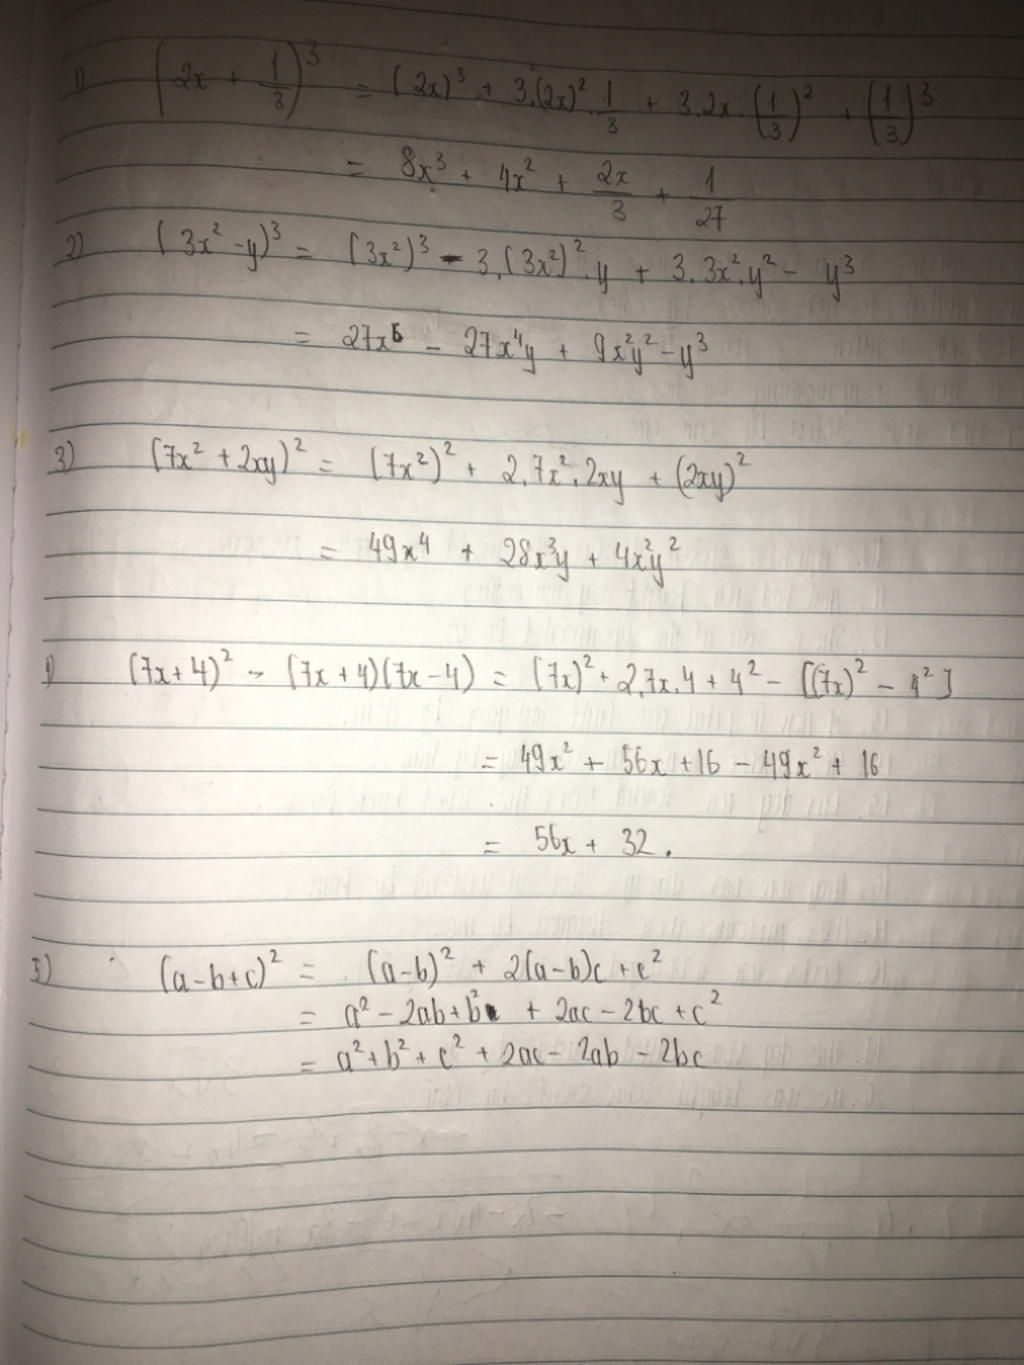 1) (2x + 1/3)³ = (2x)³ + 3.(2x)².1/3 + 3.2x.(1/3)² + (1/3)³
= 8x³ + 4x² + 2x/3 + 1/27
2) (3x² - y)³ = (3x²)³ - 3.(3x²)².y + 3.3x².y² - y³
= 27x⁶ - 27x⁴y + 9x²y² - y³
3) (7x² + 2xy)² = (7x²)² + 2.7x².2xy + (2xy)²
= 49x⁴ + 28x³y + 4x²y²
4) (7x+4)² - (7x+4)(7x-4) = (7x)² + 2.7x.4 + 4² - [(7x)² - 4²]
= 49x² + 56x + 16 - 49x² + 16
= 56x + 32.
5) (a-b+c)² = (a-b)² + 2(a-b)c + c²
= a² - 2ab + b² + 2ac - 2bc + c²
= a² + b² + c² + 2ac - 2ab - 2bc